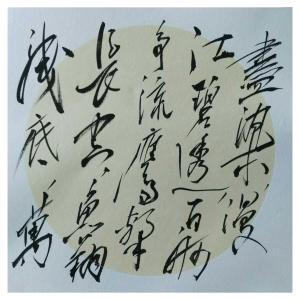 盡染漫
江碧透百舸
爭流鷹擊
長空魚翔
淺底萬